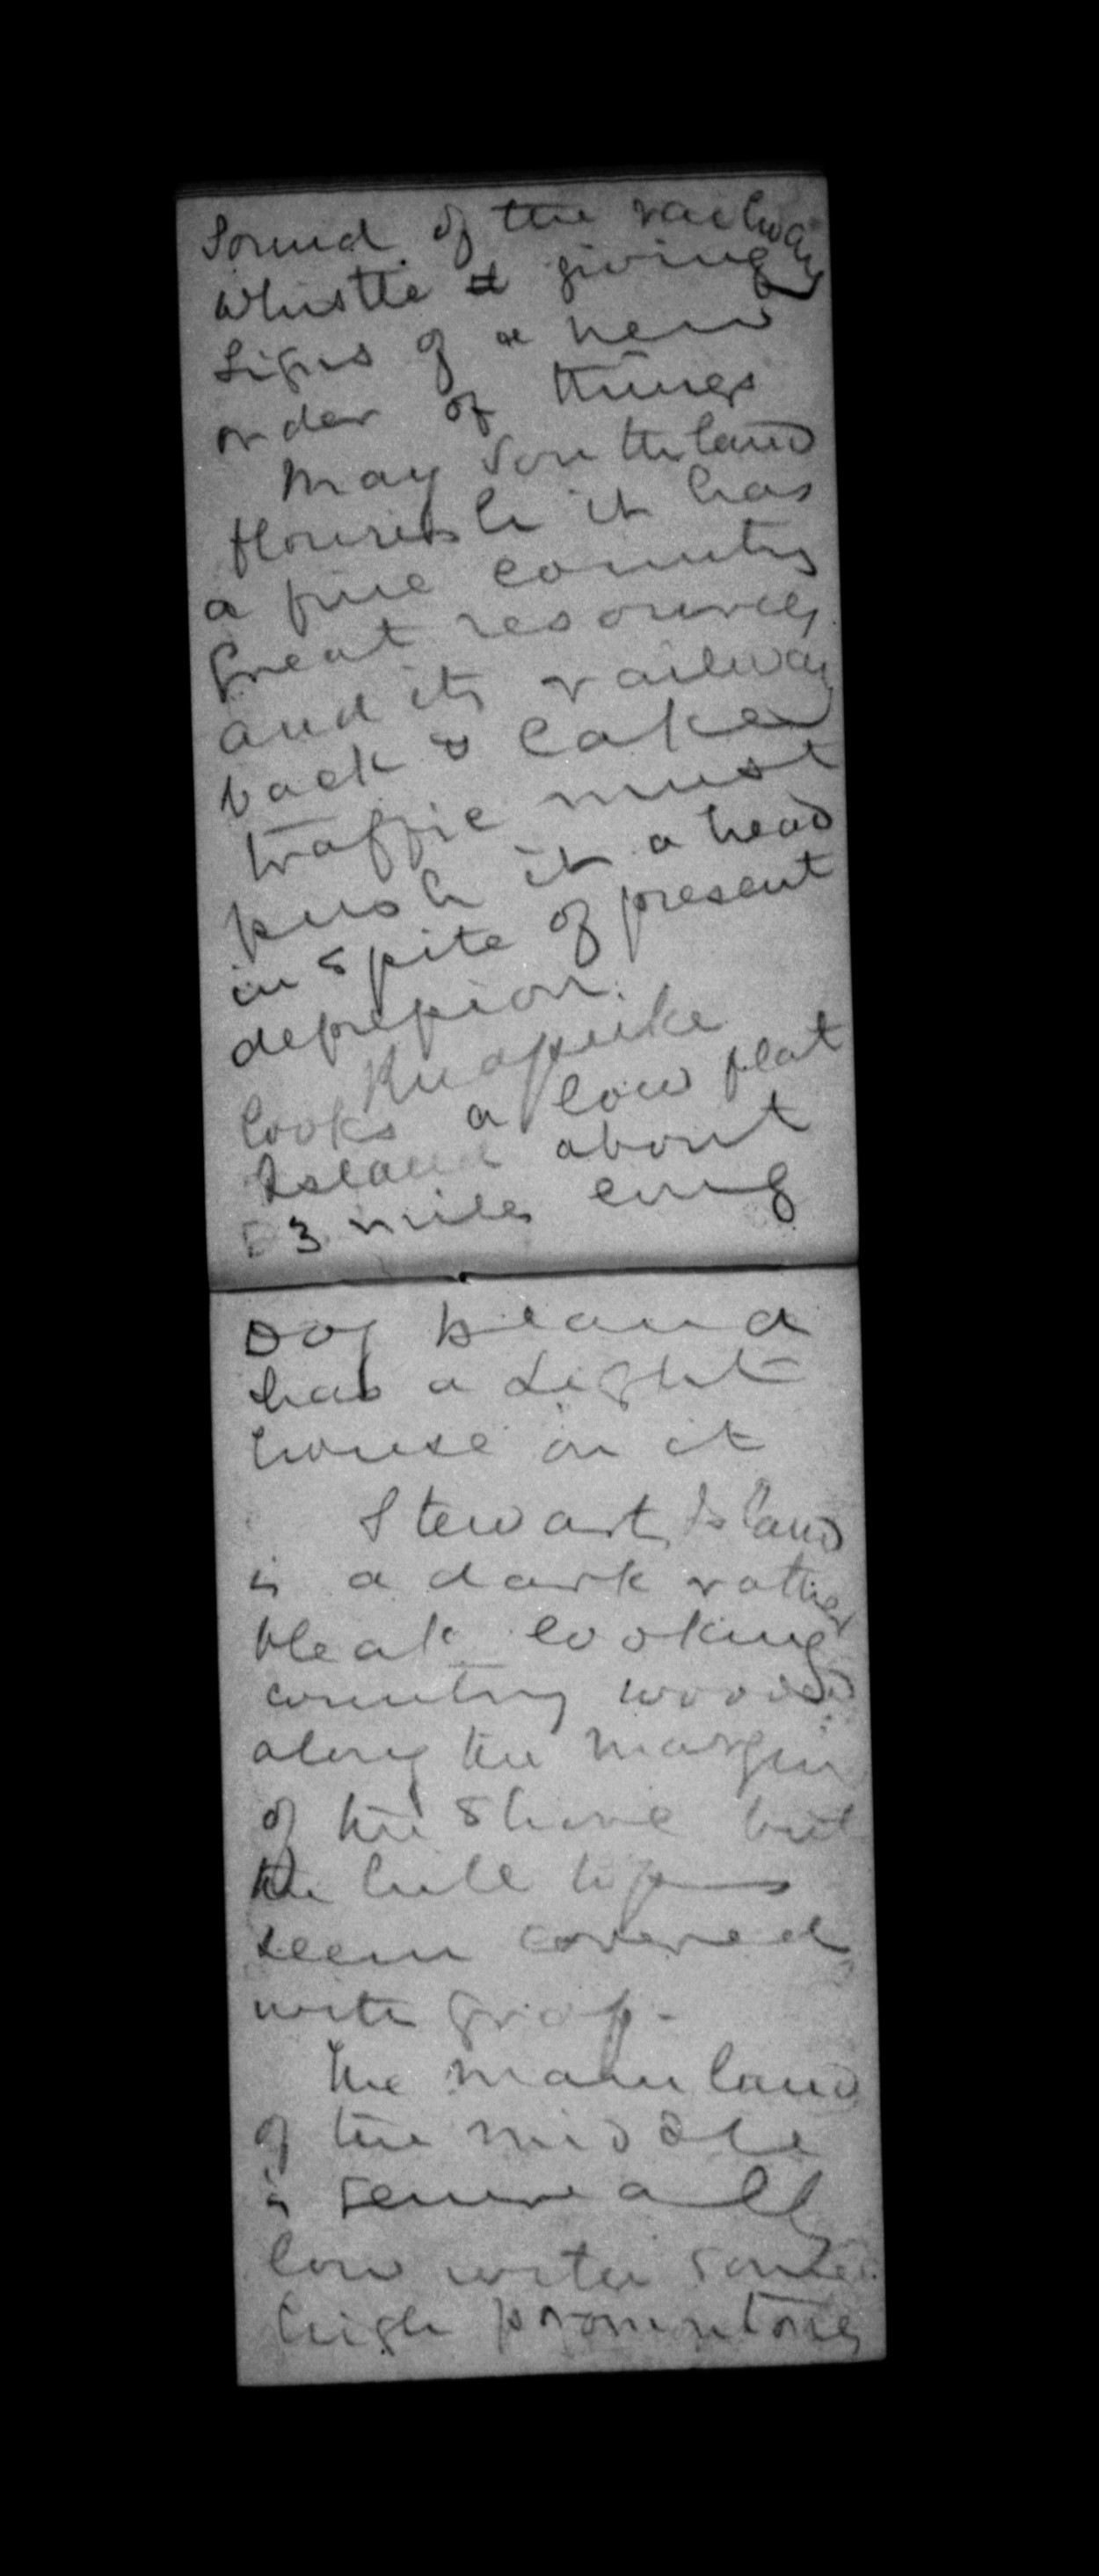 Sound of the railway
whistle & giving
signs of a new
order of things
May Southland
flourish it has
a fine country
Great resources
and its railway
back & Lake
traffic must
push it ahead
in spite of present
depression.
Ruapuke
looks a low flat
Island about
3 miles long
Dog Island
has a Light
house on it
Stewart Island
is a dark rather
bleak looking
country wooded
along the margin
of the shore but
the hill tops
seem covered
with grass -
The main land
of the middle
is generally
low with some
high promontories